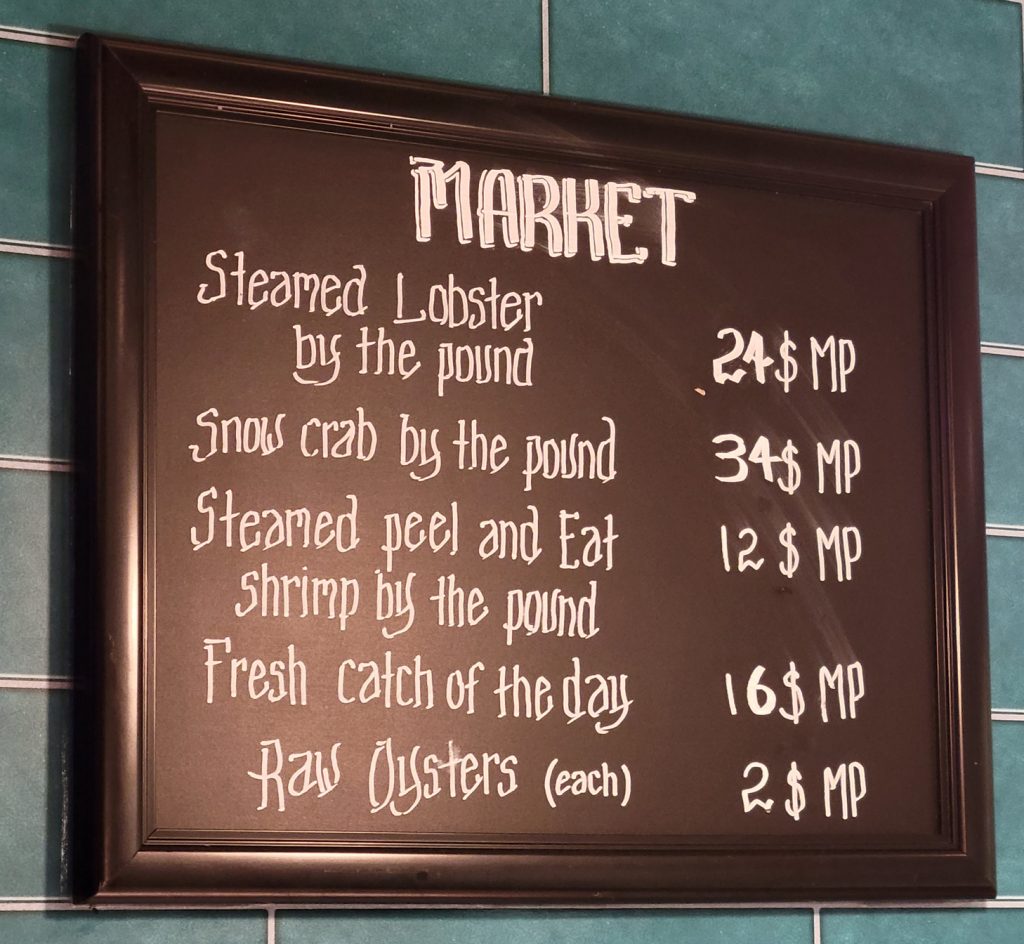 MARKET
Steamed Lobster
by the pound 24$ MP
Snow crab by the pound 34$ MP
Steamed peel and Eat 12$ MP
shrimp by the pound
Fresh catch of the day 16$ MP
Raw Oysters (each) 2$ MP